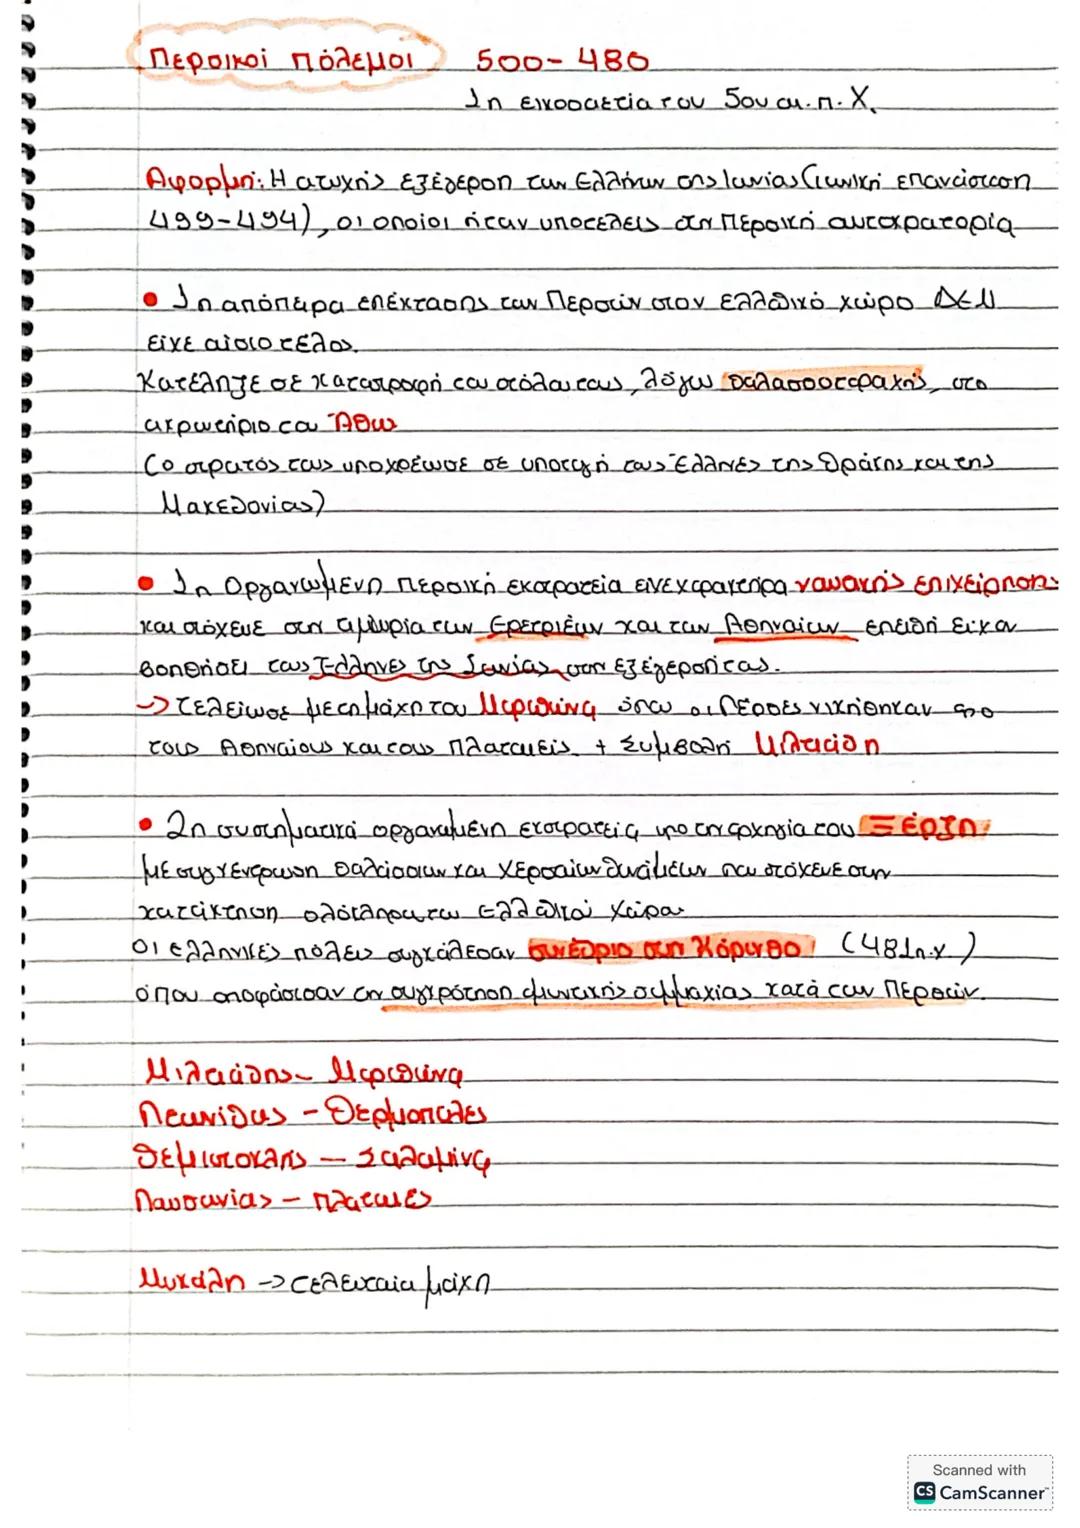 Περσικοί πόλεμοι 500-480
1η εικοσαετία του 5ου αι. π. Χ.
Αφορμή: Η ατυχής εξέγερση των Ελλήνων της Ιωνίας (ιωνική επανάσταση
499-494), οι οποίοι ήταν υποτελείς στη Περσική αυτοκρατορία
• 1η απόπειρα επέκτασης των Περσών στον ελλαδικό χώρο ΔΕΝ
είχε αίσιο τέλος.
Κατέληξε σε καταστροφή του στόλου τους, λόγω θαλασσοταραχής, στο
ακρωτήριο του Άθω
(ο στρατός τους υποχρέωσε σε υποταγή τους Έλληνες της Θράκης και της
Μακεδονίας)
• 1η Οργανωμένη περσική εκστρατεία είχε χαρακτήρα ναυτικής επιχείρησης
και στόχευε στην τιμωρία των Ερετριέων και των Αθηναίων επειδή είχαν
βοηθήσει τους Έλληνες της Ιωνίας στην εξέγερσή τους.
-> τελείωσε με τη μάχη του Μαραθώνα όπου οι Πέρσες νικήθηκαν από
τους Αθηναίους και τους Πλαταιείς. + Συμβολή Μιλτιάδη
• 2η συστηματικά οργανωμένη εκστρατεία υπό την αρχηγία του Ξέρξη
με συγκέντρωση θαλάσσιων και χερσαίων δυνάμεων που στόχευε στην
κατάκτηση ολόκληρου του Ελλαδικού χώρου
Οι ελληνικές πόλεις συγκάλεσαν συνέδριο στη Κόρινθο (481π.χ.)
όπου αποφάσισαν τη συγκρότηση αμυντικής συμμαχίας κατά των Περσών.
Μιλτιάδης - Μαραθώνα
Λεωνίδας - Θερμοπύλες
Θεμιστοκλής - Σαλαμίνα
Παυσανίας - Πλαταιές
Μυκάλη -> τελευταία μάχη
Scanned with
CS CamScanner